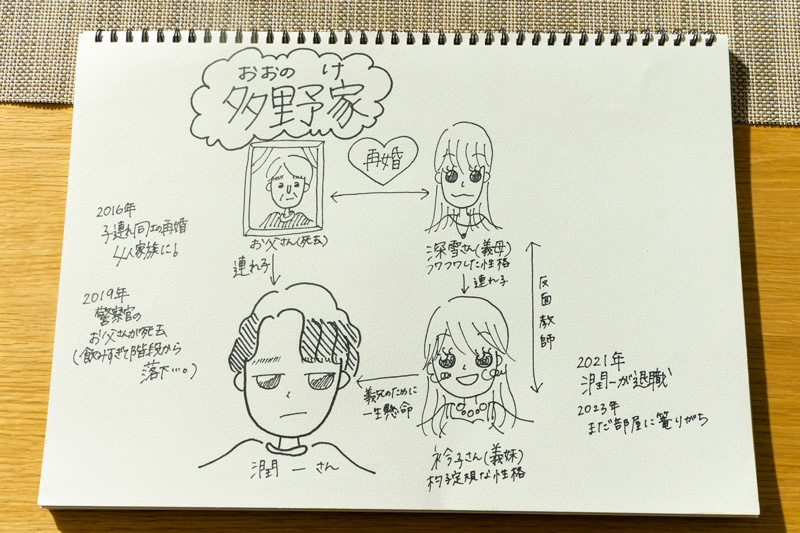 おおの け
多野家
再婚
お父さん(死去)
深雪さん(義母)
フワフワした性格
2016年
子連れ同士の再婚
4人家族に!
連れ子
連れ子
反面教師
2019年
警察官の
お父さんが死去
(飲みすぎて階段から
落下…。)
義兄のために
一生懸命
潤一さん
衿子さん(義妹)
杓子定規な性格
2021年
潤一が退職
2023年
まだ部屋に篭りがち